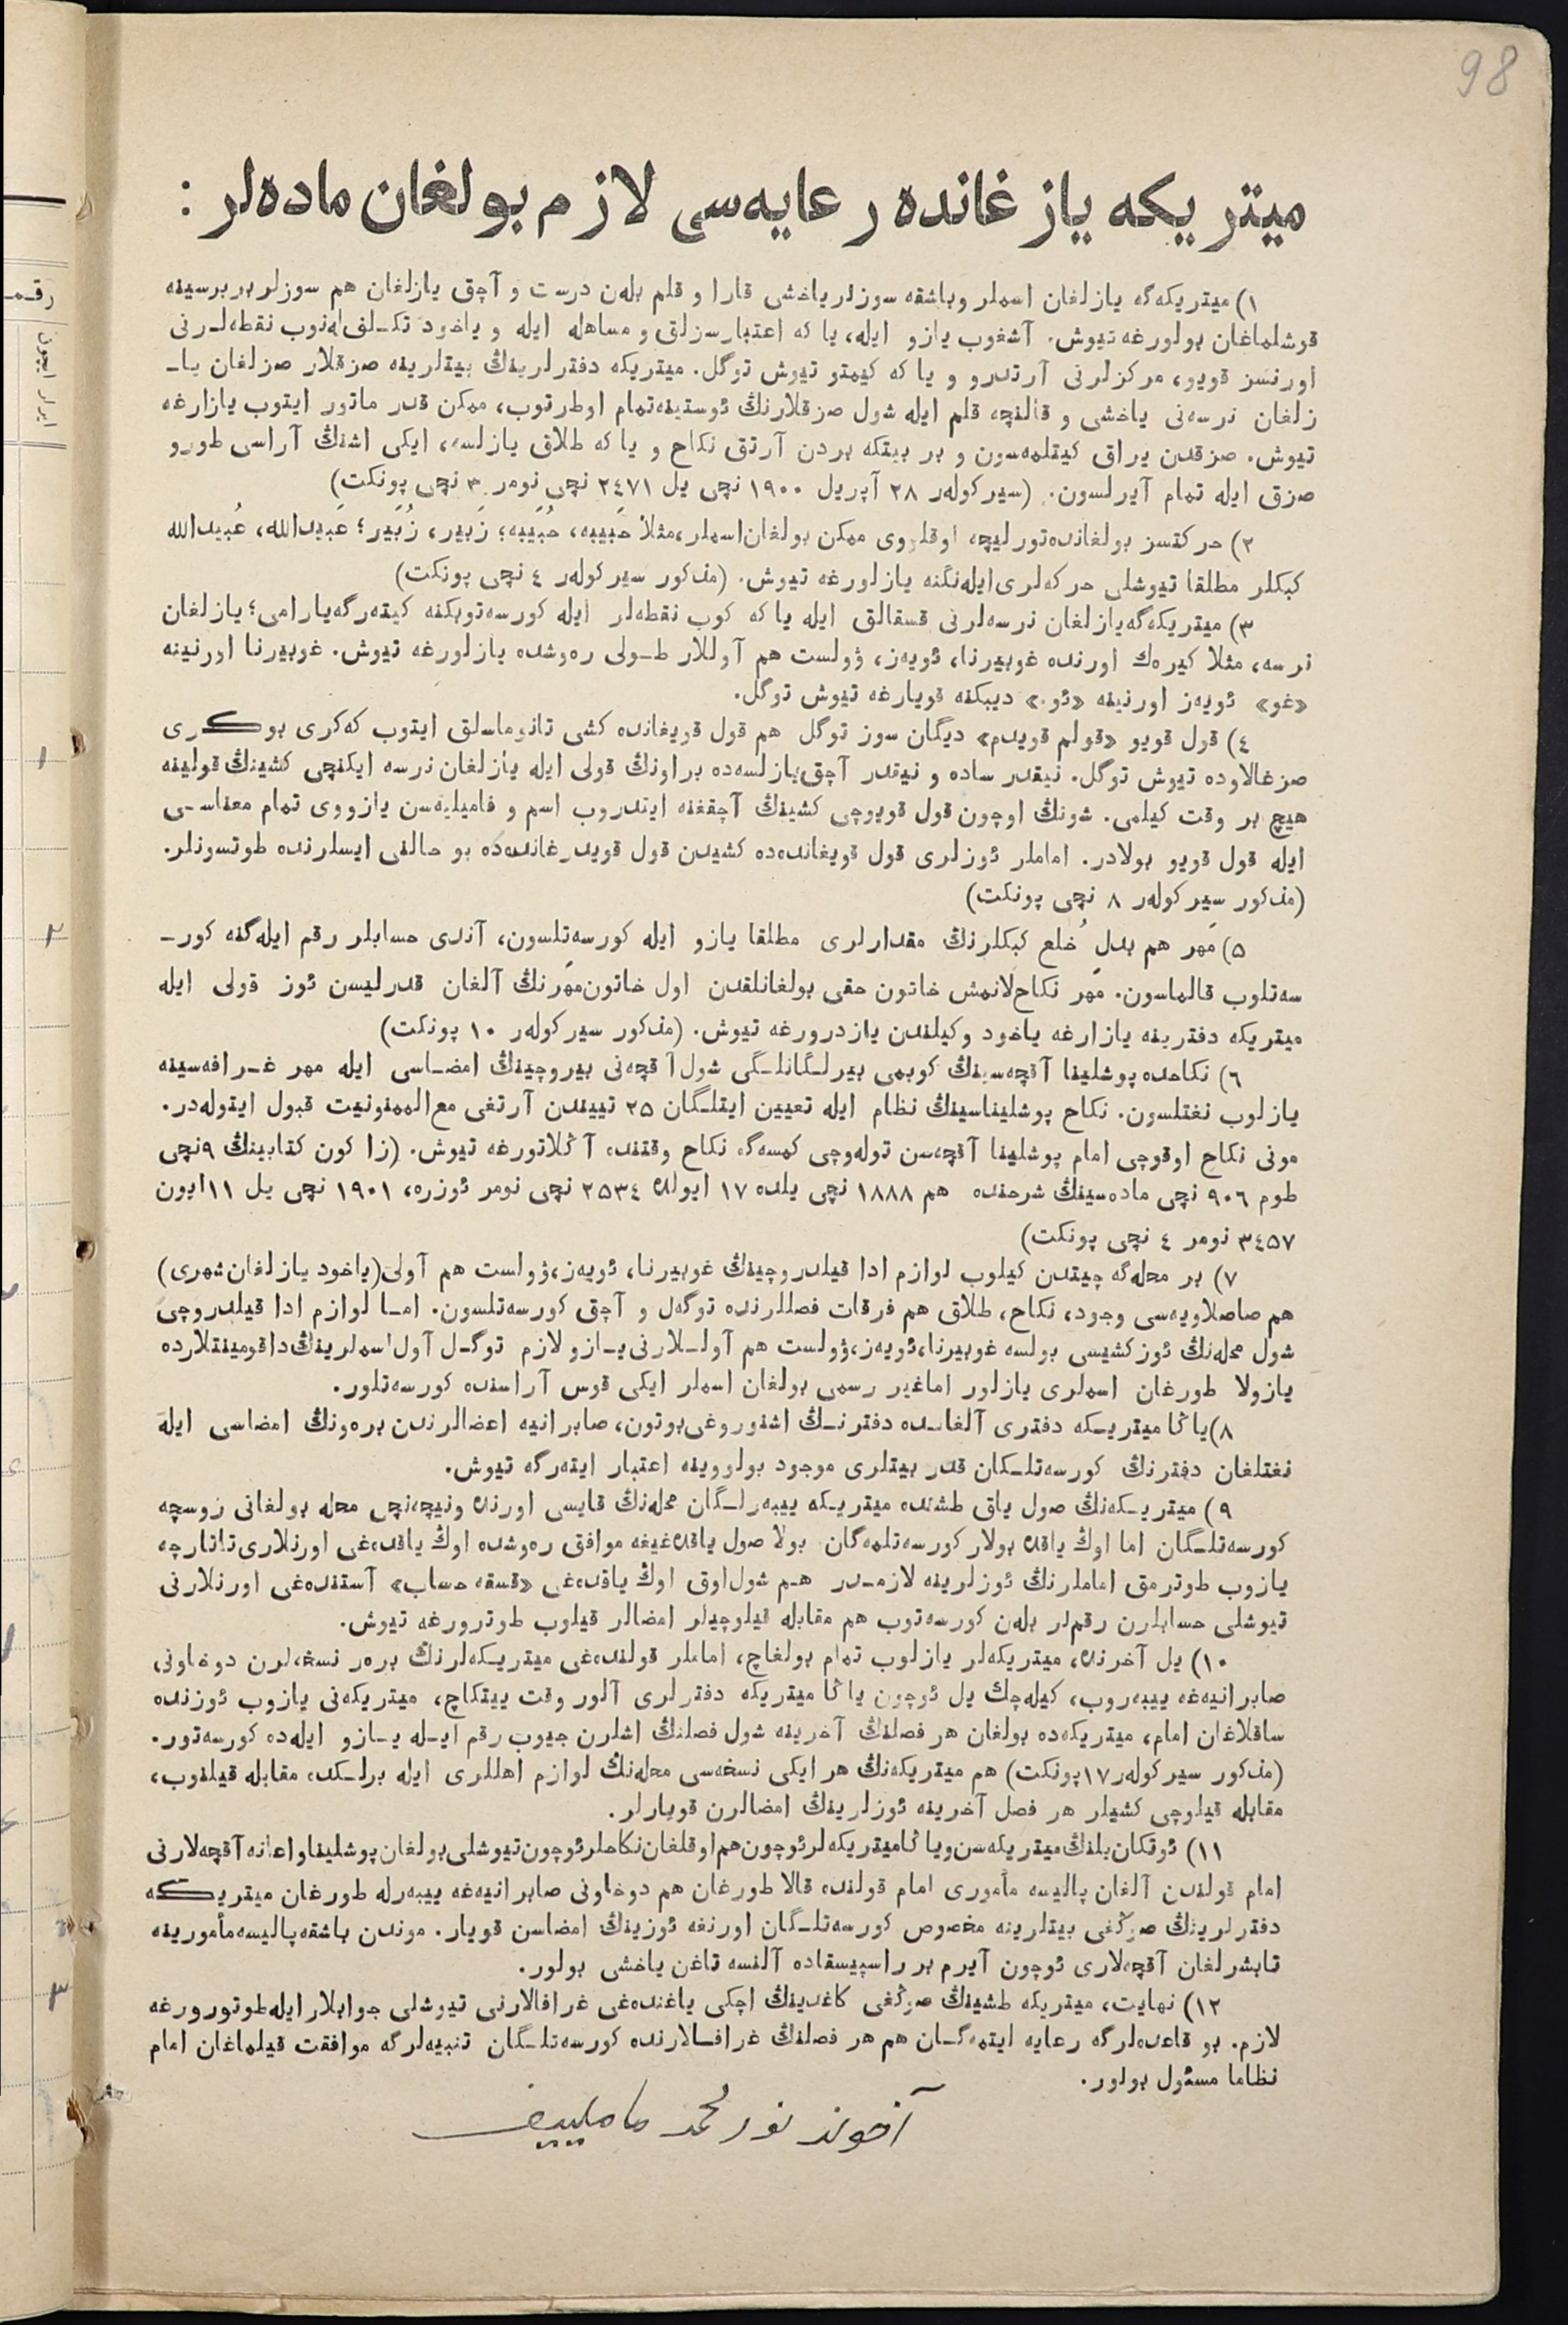 98
ميتريكه يازغانده رعايه‌سى لازم بولغان ماده‌لر :
١) ميتريكه‌گه يازلغان اسملر وباشقه سوزلر ياخشى قارا و قلم بله‌ن درست و آچق يازلغان هم سوزلر بربرسينه
قوشلماغان بولورغه تيوش. آشغوب يازو ايله، يا كه اعتبارسزلق و مساهله ايله و ياخود تكـلف‌له‌نوب نقطه‌لـرنى
اورنسز قويو، مركزلرنى آرتدرو و يا كه كيمتو تيوش توگل. ميتريكه دفترلرينڭ بيتلرينه صزقلار صزلغان يا-
زلغان نرسه‌نى ياخشى و قالنچه قلم ايله شول صزقلارنڭ ئوستينه تمام اوطرتوب، ممكن قدر ماتور ايتوب يازارغه
تيوش. صزقدن يراق كيتلمه‌سون و بر بيتكه بردن آرتق نكاح و يا كه طلاق يازلسه، ايكى اشنڭ آراسى طورو
صزق ايله تمام آيرلسون. (سيركولەر ٢٨ آپريل ١٩٠٠ نچى يل ٢٤٧١ نچى نومر ٣ نچى پونكت)
٢) حركتسز بولغانده تورليچه اوقلووى ممكن بولغان اسملر، مثلا حَبيبه، حُبَيبه؛ زَبير، زُبَير؛ عَبيدالله، عُبيدالله
كبكلر مطلقا تيوشلى حركه‌لرى ايله‌نگنه يازلورغه تيوش. (مذكور سيركولەر ٤ نچى پونكت)
٣) ميتريكه‌گه يازلغان نرسه‌لرنى قسقالق ايله يا كه كوب نقطه‌لر ايله كورسه‌توبكنه كيته‌رگه يارامى؛ يازلغان
نرسه، مثلا كيره‌ك اورنده غوبيرنا، ئويه‌ز، ۋولست هم آوللار طـولى ره‌وشده يازلورغه تيوش. غوبيرنا اورنينه
«غو» ئويه‌ز اورنينه «ئو.» ديبكنه قويارغه تيوش توگل.
٤) قول قويو «قولم قويدم» ديگان سوز توگل هم قول قويغانده كشى تانوماسلق ايتوب كه‌كرى بوكـرى
صزغالاوده تيوش توگل. نيقدر ساده و نيقدر آچق يازلسه‌ده براونڭ قولى ايله يازلغان نرسه ايكنچى كشينڭ قولينه
هيچ بر وقت كيلمى. شونڭ اوچون قول قويوچى كشينڭ آچقغنه ايتدروب اسم و فاميليه‌سن يازووى تمام معناسـى
ايله قول قويو بولادر. اماملر ئوزلرى قول قويغانده‌ده كشيدن قول قويدرغانده‌ده بو حالنى ايسلرنده طوتسونلر.
(مذكور سيركولەر ٨ نچى پونكت)
٥) مَهر هم بدلِ خُلع كبكلرنڭ مقدارلرى مطلقا يازو ايله كورسه‌تلسون، آندى حسابلر رقم ايله‌گنه كور-
سه‌تلوب قالماسون. مَهر نكاح‌لانمش خاتون حقى بولغانلقدن اول خاتون مَهرنڭ آلغان قدرليسن ئوز قولى ايله
ميتريكه دفترينه يازارغه ياخود وكيلندن يازدرورغه تيوش. (مذكور سيركولەر ١٠ پونكت)
٦) نكاحده پوشلينا آقچه‌سينڭ كوبمى بيرلـگانلـگى شول آقچه‌نى بيروچينڭ امضـاسى ايله مهر غـرافه‌سينه
يازلوب نغتلسون. نكاح پوشليناسينڭ نظام ايله تعيين ايتلـگان ٢٥ تييندن آرتغى مع‌الممنونيت قبول ايتوله‌در.
مونى نكاح اوقوچى امام پوشلينا آقچه‌سن توله‌وچى كمسه‌گه نكاح وقتنده آڭلاتورغه تيوش. (زاكون كتابينڭ ٩نچى
طوم ٩٠٦ نچى ماده‌سينڭ شرحنده هم ١٨٨٨ نچى يلده ١٧ ايولده ٢٥٣٤ نچى نومر ئوزره، ١٩٠١ نچى يل ١١ ايون
٣٤٥٧ نومر ٤ نچى پونكت)
٧) بر محله‌گه چيتدن كيلوب لوازم ادا قيلدروچينڭ غوبيرنا، ئويه‌ز، ۋولست هم آولى (ياخود يازلغان شهرى)
هم صاصلاويه‌سى وجود، نكاح، طلاق هم فرقات فصللرنده توگه‌ل و آچق كورسه‌تلسون. امـا لوازم ادا قيلدروچى
شول محله‌نڭ ئوز كشيسى بولسه غوبيرنا، ئويه‌ز، ۋولست هم آولـلارنى يـازو لازم توگـل آول اسملرينڭ داقومينتلارده
يازولا طورغان اسملرى يازلور اما غير رسمى بولغان اسملر ايكى قوس آراسنده كورسه‌تلور.
٨) ياڭا ميتريـكه دفترى آلغانـده دفترنـڭ اشنوروغى بوتون، صابرانيه اعضالرندن بره‌ونڭ امضاسى ايله
نغتلغان دفترنڭ كورسه‌تلـگان قدر بيتلرى موجود بولووينه اعتبار ايته‌رگه تيوش.
٩) ميتريـكه‌نڭ صول ياق طشنده ميتريـكه ييبه‌رلـگان محله‌نڭ قايسى اورنده ونيچه‌نچى محله بولغانى روسچه
كورسه‌تلـگان اما اوڭ ياقده بولار كورسه‌تلمه‌گان بولا صول ياقده‌غيغه موافق ره‌وشده اوڭ ياقده‌غى اورنلارى تاتارچه
يازوب طوترمق اماملرنڭ ئوزلرينه لازمـدر هـم شول‌اوق اوڭ ياقده‌غى «قسقه حساب» آستنده‌غى اورنلارنى
تيوشلى حسابلرن رقملر بله‌ن كورسه‌توب هم مقابله قيلوچيلر امضالر قيلوب طوترورغه تيوش.
١٠) يل آخرنده، ميتريكه‌لر يازلوب تمام بولغاچ، اماملر قولنده‌غى ميتريـكه‌لرنڭ بره‌ر نسخه‌لرن دوخاونى
صابرانيه‌غه ييبه‌روب، كيله‌چك يل ئوچون ياڭا ميتريكه دفترلرى آلور وقت ييتكاچ، ميتريكه‌نى يازوب ئوزنده
ساقلاغان امام، ميتريكه‌ده بولغان هر فصلنڭ آخرينه شول فصلنڭ اشلرن جيوب رقم ايـله يـازو ايله‌ده كورسه‌تور.
(مذكور سيركولەر ١٧ پونكت) هم ميتريكه‌نڭ هر ايكى نسخه‌سى محله‌نڭ لوازم اهللرى ايله برلـكده مقابله قيلنوب،
مقابله قيلوچى كشيلر هر فصل آخرينه ئوزلرينڭ امضالرن قويارلر.
١١) ئوتكان يلنڭ ميتريكه‌سن ويا ڭا ميتريكه‌لر ئوچون هم اوقلغان نكاحلر ئوچون تيوشلى بولغان پوشلينا و اعانه آقچه‌لارنى
امام قولندن آلغان پاليسه مأمورى امام قولنده قالا طورغان هم دوخاونى صابرانيه‌غه ييبه‌رله طورغان ميتريكـه
دفترلرينڭ صوڭغى بيتلرينه مخصوص كورسه‌تلـگان اورنغه ئوزينڭ امضاسن قويار. موندن باشقه پاليسه مأمورينه
تابشرلغان آقچه‌لارى ئوچون آيرم بر راسپيسقاده آلنسه تاغن ياخشى بولور.
١٢) نهايت، ميتريكه طشينڭ صوڭغى كاغدينڭ اچكى ياغنده‌غى غرافالارنى تيوشلى جوابلار ايله طوتورورغه
لازم. بو قاعده‌لرگه رعايه ايتمه‌گـان هم هر فصلنڭ غرافـالارنده كورسه‌تلـگان تنبيه‌لرگه موافقت قيلماغان امام
نظاما مسئول بولور.
آخوند نورمحمد ماملييف